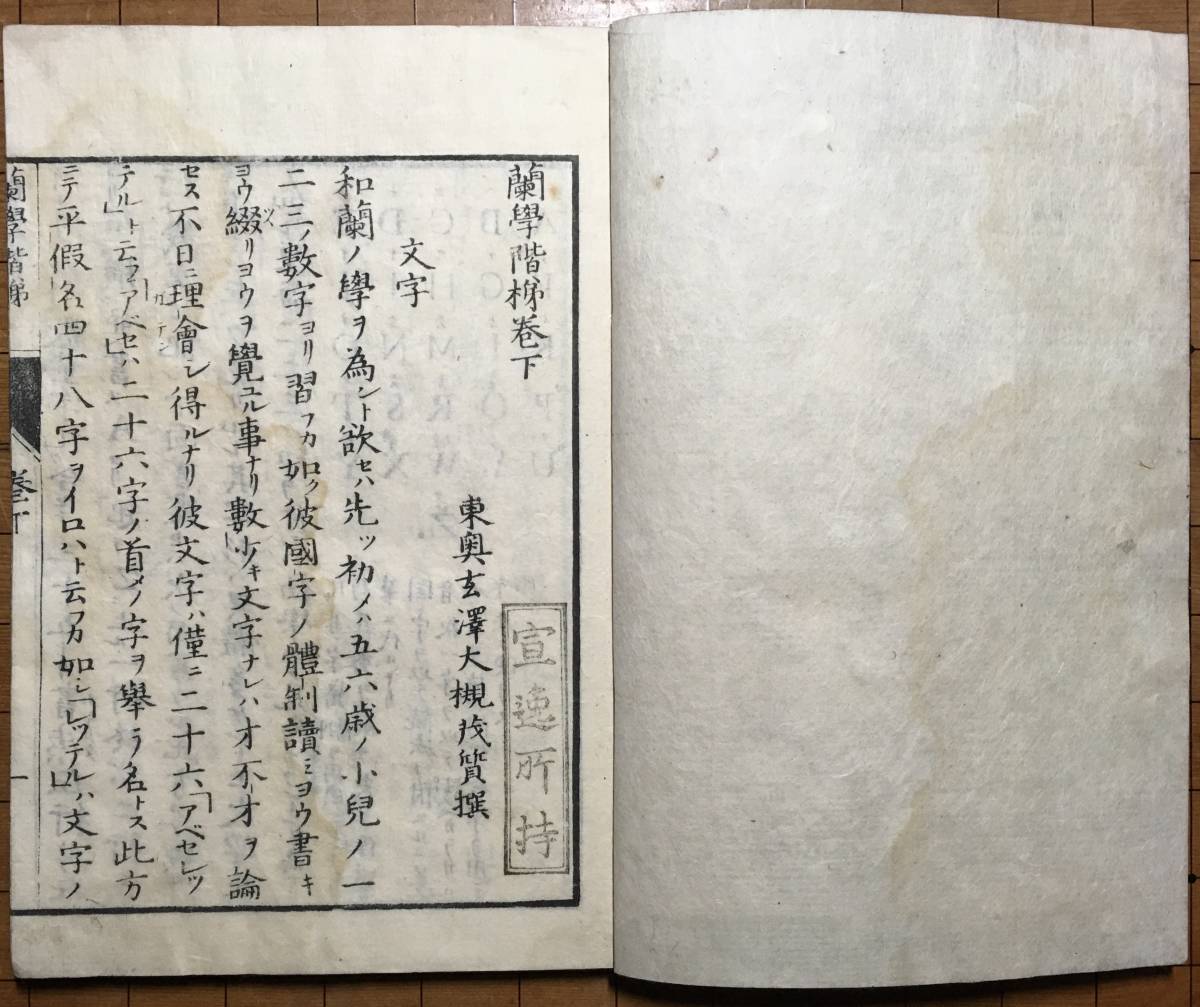 蘭學階梯卷下
東奥玄澤大槻茂質撰
宣逸所持
文字
和蘭ノ學ヲ為ント欲セハ先ツ初メハ五六歳ノ小兒ノ一
二三ノ數字ヨリ習フカ如ク彼國字ノ體制讀ミヨウ書キ
ヨウ綴リヨウヲ覺ユル事ナリ數少キ文字ナレハ才不才ヲ論
ツヽ
セス不日ニ理會シ得ルナリ彼文字ハ僅ニ二十六「アベセレッ
ガテン
テル」ト云フ「アベセ」ハ二十六字ノ首メノ字ヲ舉ラ名トス此方
ニテ平假名四十八字ヲイロハト云フカ如シ「レッテル」ハ文字ノ
蘭學階梯
卷下
一